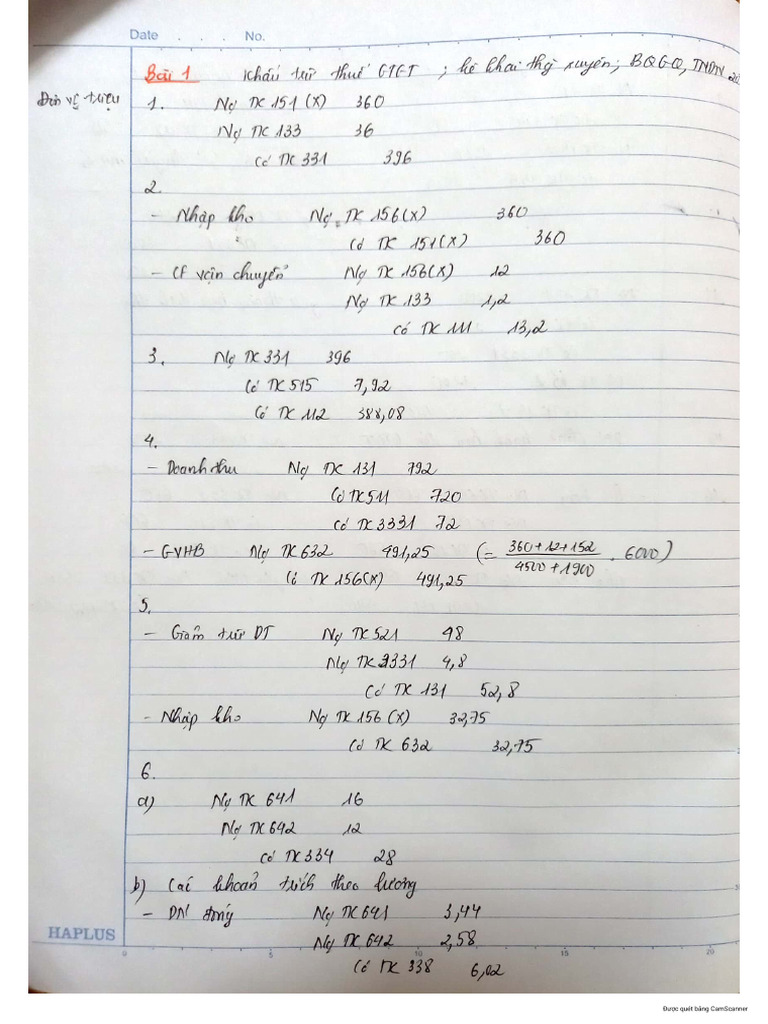 Date . . . No.
Bài 1 Khấu trừ thuế GTGT ; kê khai thg xuyên; BQGQ, TNDN 20
Đơn vị triệu
1. Nợ TK 151 (X) 360
Nợ TK 133 36
Có TK 331 396
2.
- Nhập kho Nợ TK 156(X) 360
Có TK 151(X) 360
- CF vận chuyển Nợ TK 156(X) 12
Nợ TK 133 1,2
Có TK 111 13,2
3. Nợ TK 331 396
Có TK 515 7,92
Có TK 112 388,08
4.
- Doanh thu Nợ TK 131 792
Có TK 511 720
Có TK 3331 72
- GVHB Nợ TK 632 491,25 (= 360+12+152 / 4500+1900 . 6000)
Có TK 156(X) 491,25
5.
- Giảm trừ DT Nợ TK 521 48
Nợ TK 3331 4,8
Có TK 131 52,8
- Nhập kho Nợ TK 156 (X) 32,75
Có TK 632 32,75
6.
a) Nợ TK 641 16
Nợ TK 642 12
Có TK 334 28
b) Các khoản trích theo lương
- DN đóng Nợ TK 641 3,44
Nợ TK 642 2,58
Có TK 338 6,02
HAPLUS
0 5 10 15 20
Được quét bằng CamScanner